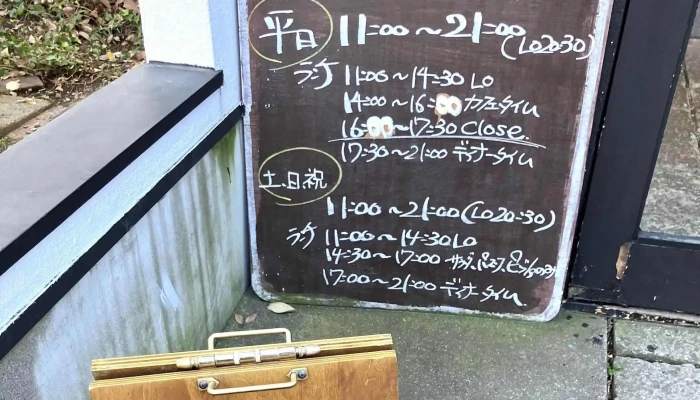 平日 11:00～21:00(LO20:30)
ランチ 11:00～14:30 LO
14:00～16:00 カフェタイム
16:00～17:30 Close.
17:30～21:00 ディナータイム
土.日.祝
11:00～21:00(LO20:30)
ランチ 11:00～14:30 LO
14:30～17:00
17:00～21:00 ディナータイム